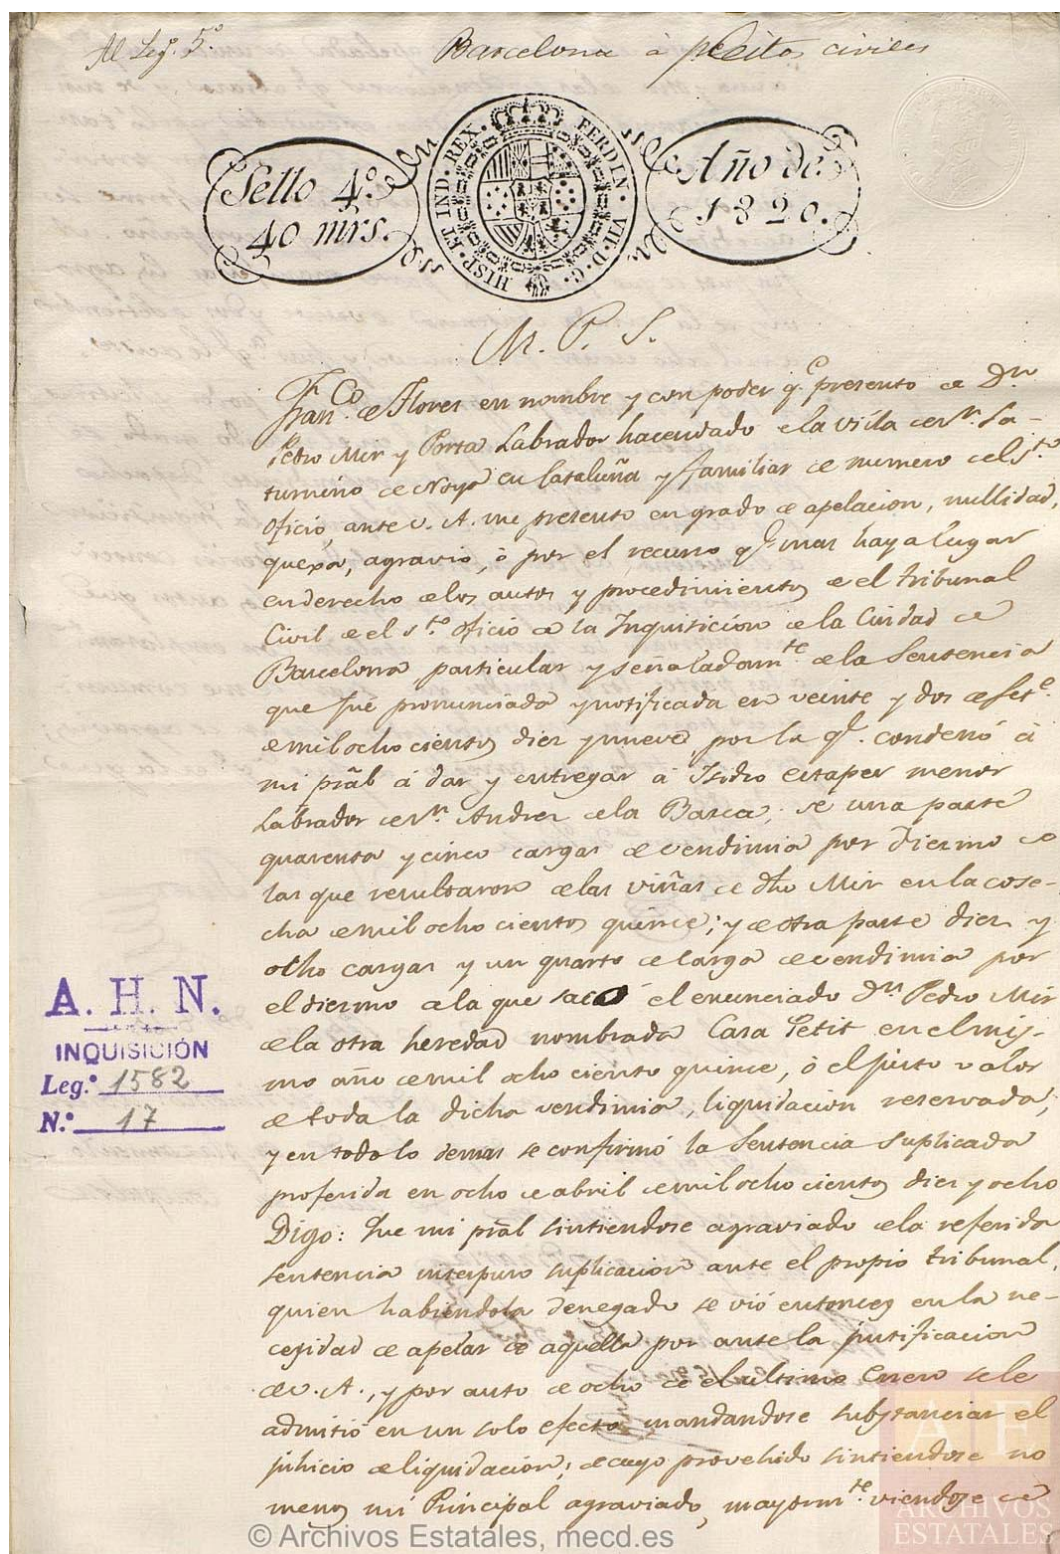 Al Leg.º 5.º
Barcelona à pleitos civiles
Sello 4.º
40 mrs.
FERDIN. VII. D. G.
HISP. ET IND. REX.
Año de
1820.
M. P. S.
Fran.co de Flores en nombre y con poder q.e presento de D.n
Pedro Mir y Porta Labrador hacendado de la villa de S.n Sa-
turnino de Noya en Cataluña y familiar de numero del S.to
Oficio, ante V. A. me presento en grado de apelacion, nullidad,
quexa, agravio, ò por el recurso q.e mas haya lugar
en derecho de los autos y procedimientos de el tribunal
Civil de el S.to Oficio de la Inquisicion de la Ciudad de
Barcelona particular y señaladam.te de la Sentencia
que fué pronunciada y notificada en veinte y dos de Set.e
de mil ocho cientos diez y nueve, por la q.e condenó à
mi pr̃al à dar y entregar à Isidro Estaper menor
Labrador de S.n Andres de la Barca; de una parte
quarenta y cinco cargas de vendimia por diezmo de
las que resultaron de las viñas de dho Mir en la cose-
cha de mil ocho cientos quince; y de otra parte diez y
ocho cargas y un quarto de carga de vendimia por
el diezmo de la que sacó el enunciado D.n Pedro Mir
de la otra heredad nombrada Casa Petit en el mis-
mo año de mil ocho ciento quince, ò el justo valor
de toda la dicha vendimia, liquidacion reservada;
y en todo lo demas se confirmó la Sentencia suplicada
proferida en ocho de abril de mil ocho cientos diez y ocho
Digo: Que mi pr̃al sintiendose agraviado de la referida
sentencia interpuso suplicacion ante el propio tribunal,
quien habiendola denegado se vió entonces en la ne-
cesidad de apelar de aquella por ante la justificacion
de V. A., y por auto de ocho de el ultimo Enero se le
admitió en un solo efecto mandandose substanciar el
juhicio de liquidacion; de cuyo provehido sintiendose no
menos mi Principal agraviado, mayorm.te viendose de
A. H. N.
INQUISICIÓN
Leg.º 1582
N.º 17
© Archivos Estatales, mecd.es
AE
ARCHIVOS
ESTATALES